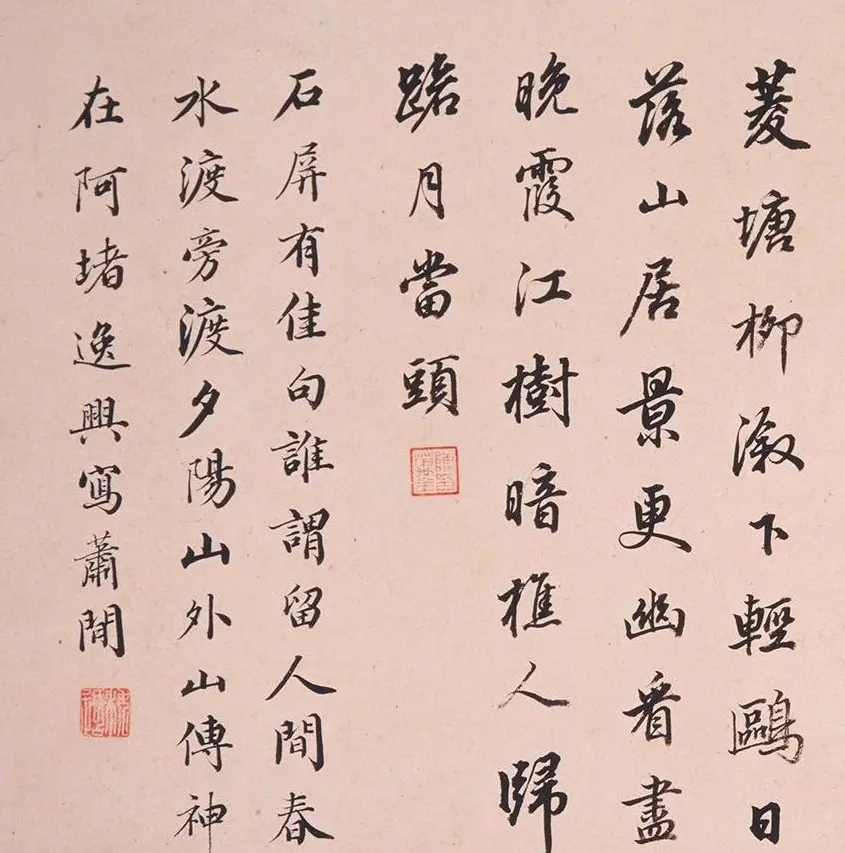 菱塘柳溆下輕鷗日
落山居景更幽看盡
晚霞江樹暗樵人歸
路月當頭
石屏有佳句誰謂留人間春
水渡旁渡夕陽山外山傳神
在阿堵逸興寫蕭閒